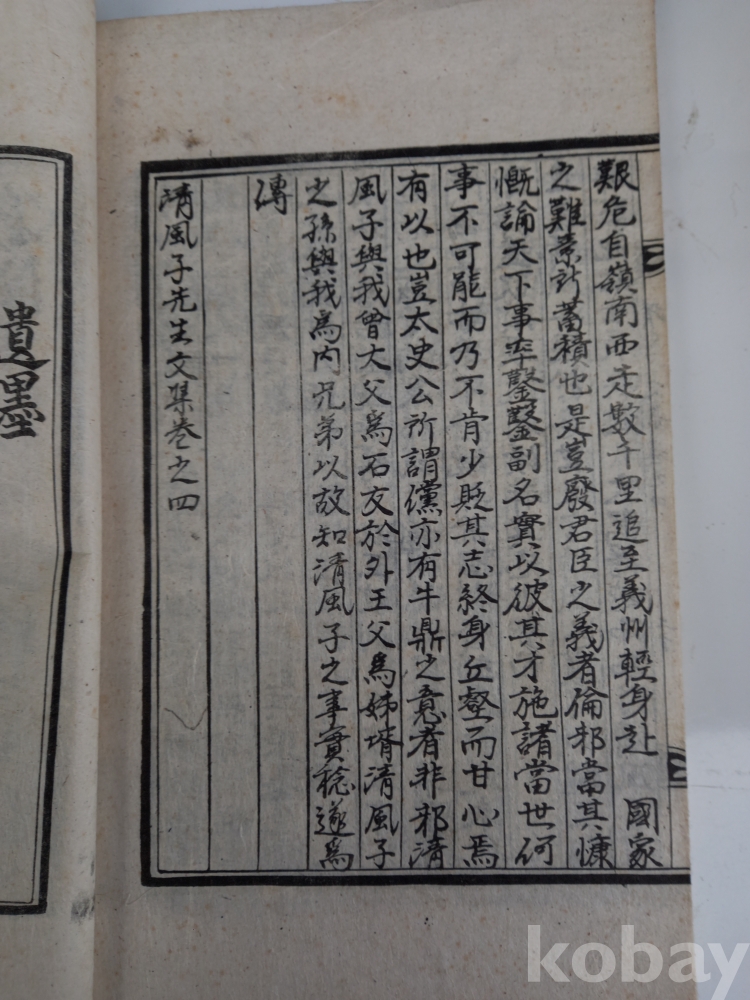 艱危自嶺南西走數千里追至義州輕身赴 國家
之難素所蓄積也是豈廢君臣之義者倫邪當其慷
慨論天下事率鑿鑿副名實以彼其才施諸當世何
事不可能而乃不肯少貶其志終身丘壑而甘心焉
有以也豈太史公所謂儻亦有牛鼎之意者非邪清
風子與我曾大父爲石友於外王父爲姊壻清風子
之孫與我爲內兄弟以故知清風子之事實稔遂爲
傳
清風子先生文集卷之四
遺墨
kobay